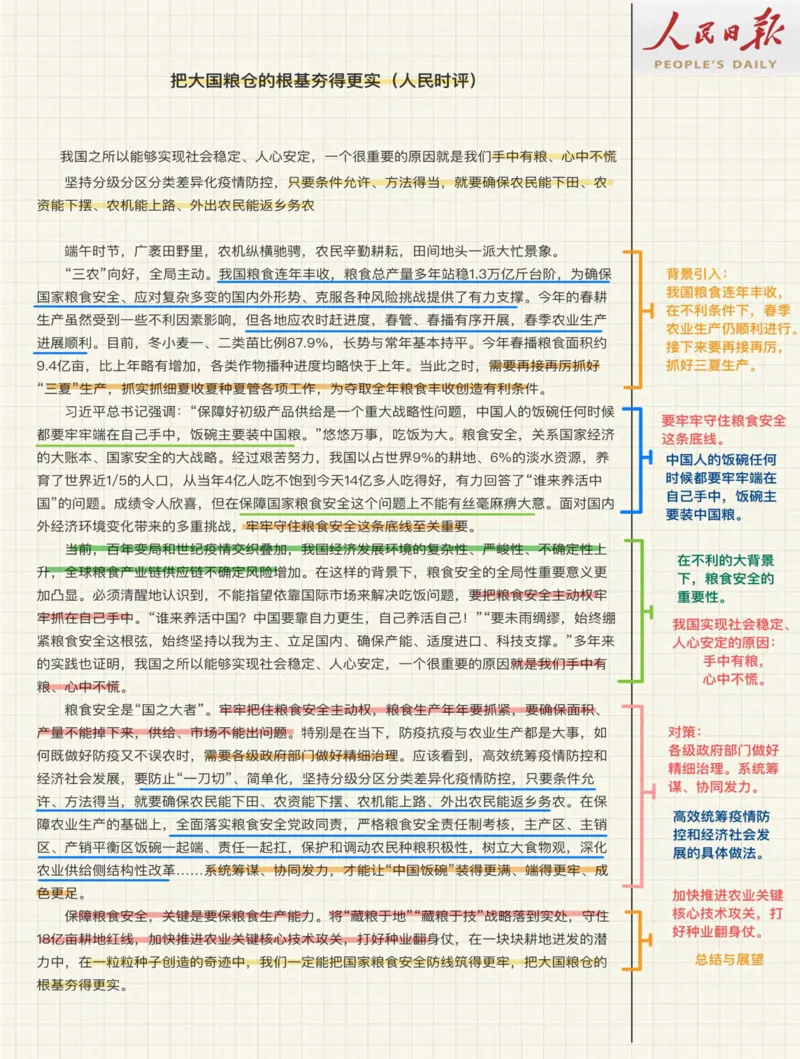 人民日报
PEOPLE'S DAILY
把大国粮仓的根基夯得更实（人民时评）
我国之所以能够实现社会稳定、人心安定，一个很重要的原因就是我们手中有粮、心中不慌
坚持分级分区分类差异化疫情防控，只要条件允许、方法得当，就要确保农民能下田、农
资能下摆、农机能上路、外出农民能返乡务农
端午时节，广袤田野里，农机纵横驰骋，农民辛勤耕耘，田间地头一派大忙景象。
“三农”向好，全局主动。我国粮食连年丰收，粮食总产量多年站稳1.3万亿斤台阶，为确保
国家粮食安全、应对复杂多变的国内外形势、克服各种风险挑战提供了有力支撑。今年的春耕
生产虽然受到一些不利因素影响，但各地应农时赶进度，春管、春播有序开展，春季农业生产
进展顺利。目前，冬小麦一、二类苗比例87.9%，长势与常年基本持平。今年春播粮食面积约
9.4亿亩，比上年略有增加，各类作物播种进度均略快于上年。当此之时，需要再接再厉抓好
“三夏”生产，抓实抓细夏收夏种夏管各项工作，为夺取全年粮食丰收创造有利条件。
习近平总书记强调：“保障好初级产品供给是一个重大战略性问题，中国人的饭碗任何时候
都要牢牢端在自己手中，饭碗主要装中国粮。”悠悠万事，吃饭为大。粮食安全，关系国家经济
的大账本、国家安全的大战略。经过艰苦努力，我国以占世界9%的耕地、6%的淡水资源，养
育了世界近1/5的人口，从当年4亿人吃不饱到今天14亿多人吃得好，有力回答了“谁来养活中
国”的问题。成绩令人欣喜，但在保障国家粮食安全这个问题上不能有丝毫麻痹大意。面对国内
外经济环境变化带来的多重挑战，牢牢守住粮食安全这条底线至关重要。
当前，百年变局和世纪疫情交织叠加，我国经济发展环境的复杂性、严峻性、不确定性上
升，全球粮食产业链供应链不确定风险增加。在这样的背景下，粮食安全的全局性重要意义更
加凸显。必须清醒地认识到，不能指望依靠国际市场来解决吃饭问题，要把粮食安全主动权牢
牢抓在自己手中。“谁来养活中国？中国要靠自力更生，自己养活自己！”“要未雨绸缪，始终绷
紧粮食安全这根弦，始终坚持以我为主、立足国内、确保产能、适度进口、科技支撑。”多年来
的实践也证明，我国之所以能够实现社会稳定、人心安定，一个很重要的原因就是我们手中有
粮、心中不慌。
粮食安全是“国之大者”。牢牢把住粮食安全主动权，粮食生产年年要抓紧，要确保面积、
产量不能掉下来，供给、市场不能出问题。特别是在当下，防疫抗疫与农业生产都是大事，如
何既做好防疫又不误农时，需要各级政府部门做好精细治理。应该看到，高效统筹疫情防控和
经济社会发展，要防止“一刀切”、简单化，坚持分级分区分类差异化疫情防控，只要条件允
许、方法得当，就要确保农民能下田、农资能下摆、农机能上路、外出农民能返乡务农。在保
障农业生产的基础上，全面落实粮食安全党政同责，严格粮食安全责任制考核，主产区、主销
区、产销平衡区饭碗一起端、责任一起扛，保护和调动农民种粮积极性，树立大食物观，深化
农业供给侧结构性改革……系统筹谋、协同发力，才能让“中国饭碗”装得更满、端得更牢、成
色更足。
保障粮食安全，关键是要保粮食生产能力。将“藏粮于地”“藏粮于技”战略落到实处，守住
18亿亩耕地红线，加快推进农业关键核心技术攻关，打好种业翻身仗，在一块块耕地迸发的潜
力中，在一粒粒种子创造的奇迹中，我们一定能把国家粮食安全防线筑得更牢，把大国粮仓的
根基夯得更实。
背景引入：
我国粮食连年丰收，
在不利条件下，春季
农业生产仍顺利进行。
接下来要再接再厉，
抓好三夏生产。
要牢牢守住粮食安全
这条底线。
中国人的饭碗任何
时候都要牢牢端在
自己手中，饭碗主
要装中国粮。
在不利的大背景
下，粮食安全的
重要性。
我国实现社会稳定、
人心安定的原因：
手中有粮，
心中不慌。
对策：
各级政府部门做好
精细治理。系统筹
谋、协同发力。
高效统筹疫情防
控和经济社会发
展的具体做法。
加快推进农业关键
核心技术攻关，打
好种业翻身仗。
总结与展望